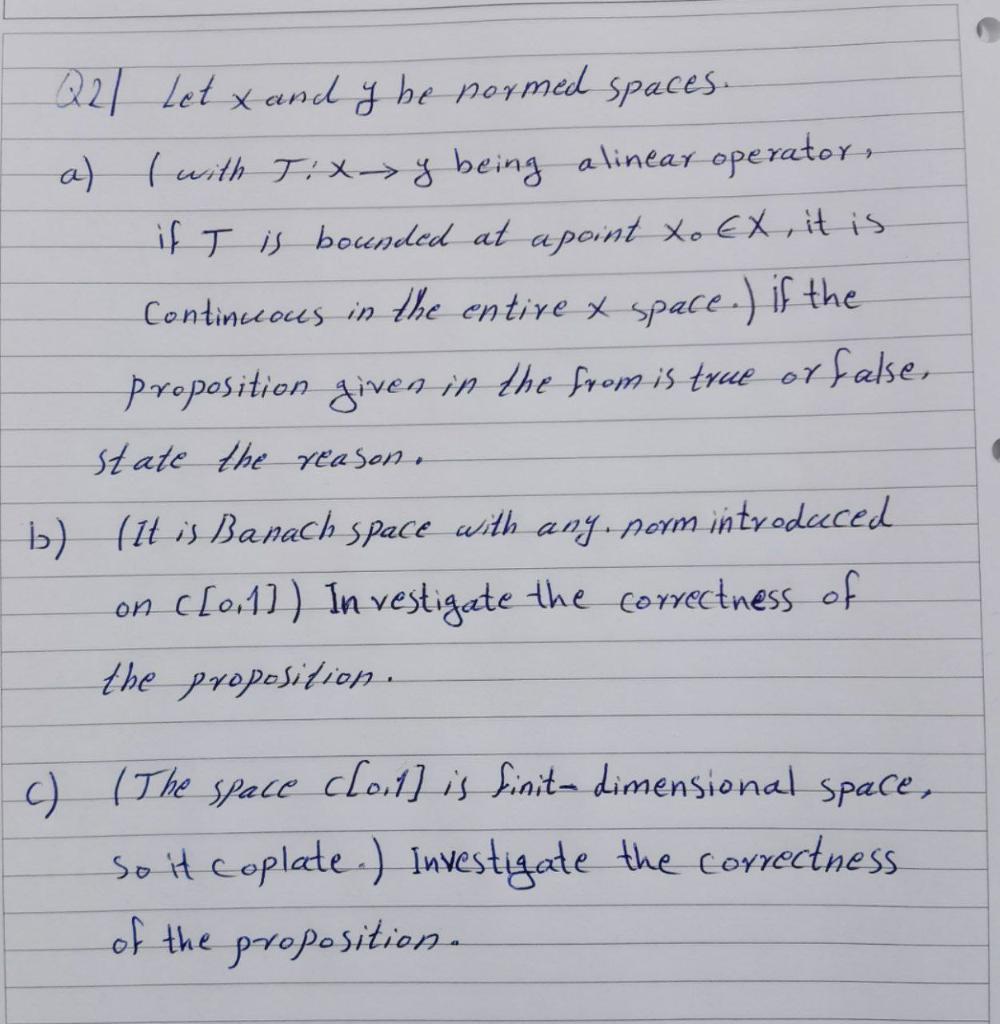 Q2/ Let x and y be normed spaces.
a) ( with T: X → y being a linear operator,
if T is bounded at a point X₀ ∈ X, it is
Continuous in the entire x space.) if the
proposition given in the from is true or false,
state the reason.
b) (It is Banach space with any. norm introduced
on C[0,1]) Investigate the correctness of
the proposition.
c) (The space C[0,1] is finit- dimensional space,
so it coplate.) Investigate the correctness
of the proposition.